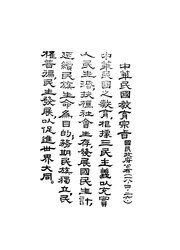 中華民國教育宗旨
中華民國之教育,根據三民主義,以充實
人民生活,扶植社會生存,發展國民生計,
延續民族生命為目的;務期民族獨立,民
權普遍,民生發展,以促進世界大同。